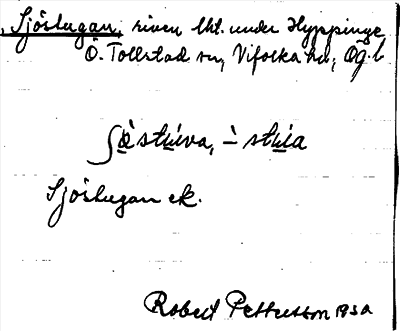 Sjöstugan, riven lht. under Hyppinge
Ö. Tollstad sn, Vifolka hd, Ög. l
ʃœ̀stuva, – stuia
Sjöstugan ek.
Robert Pettersson 1930